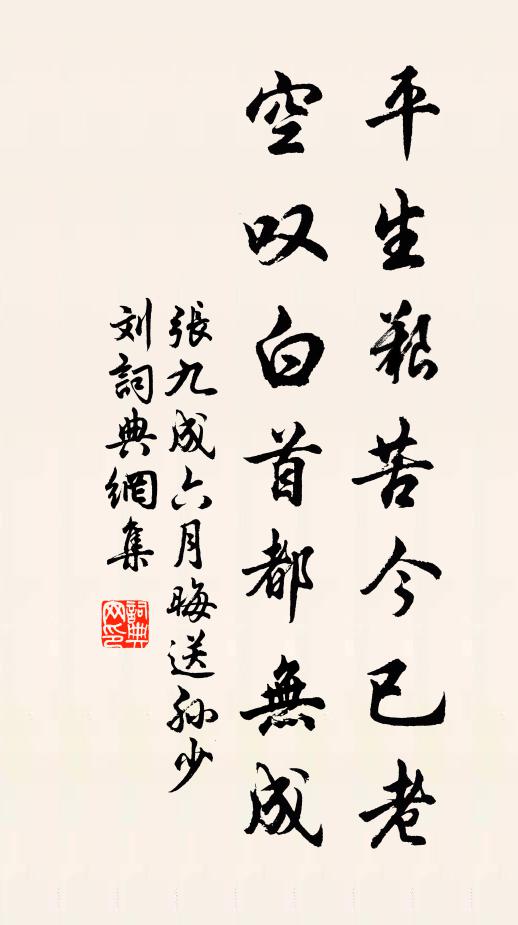 平生艱苦今已老
空叹白首都無成
張九成六月晦送孙少
刘詞典網集
詞典
网印